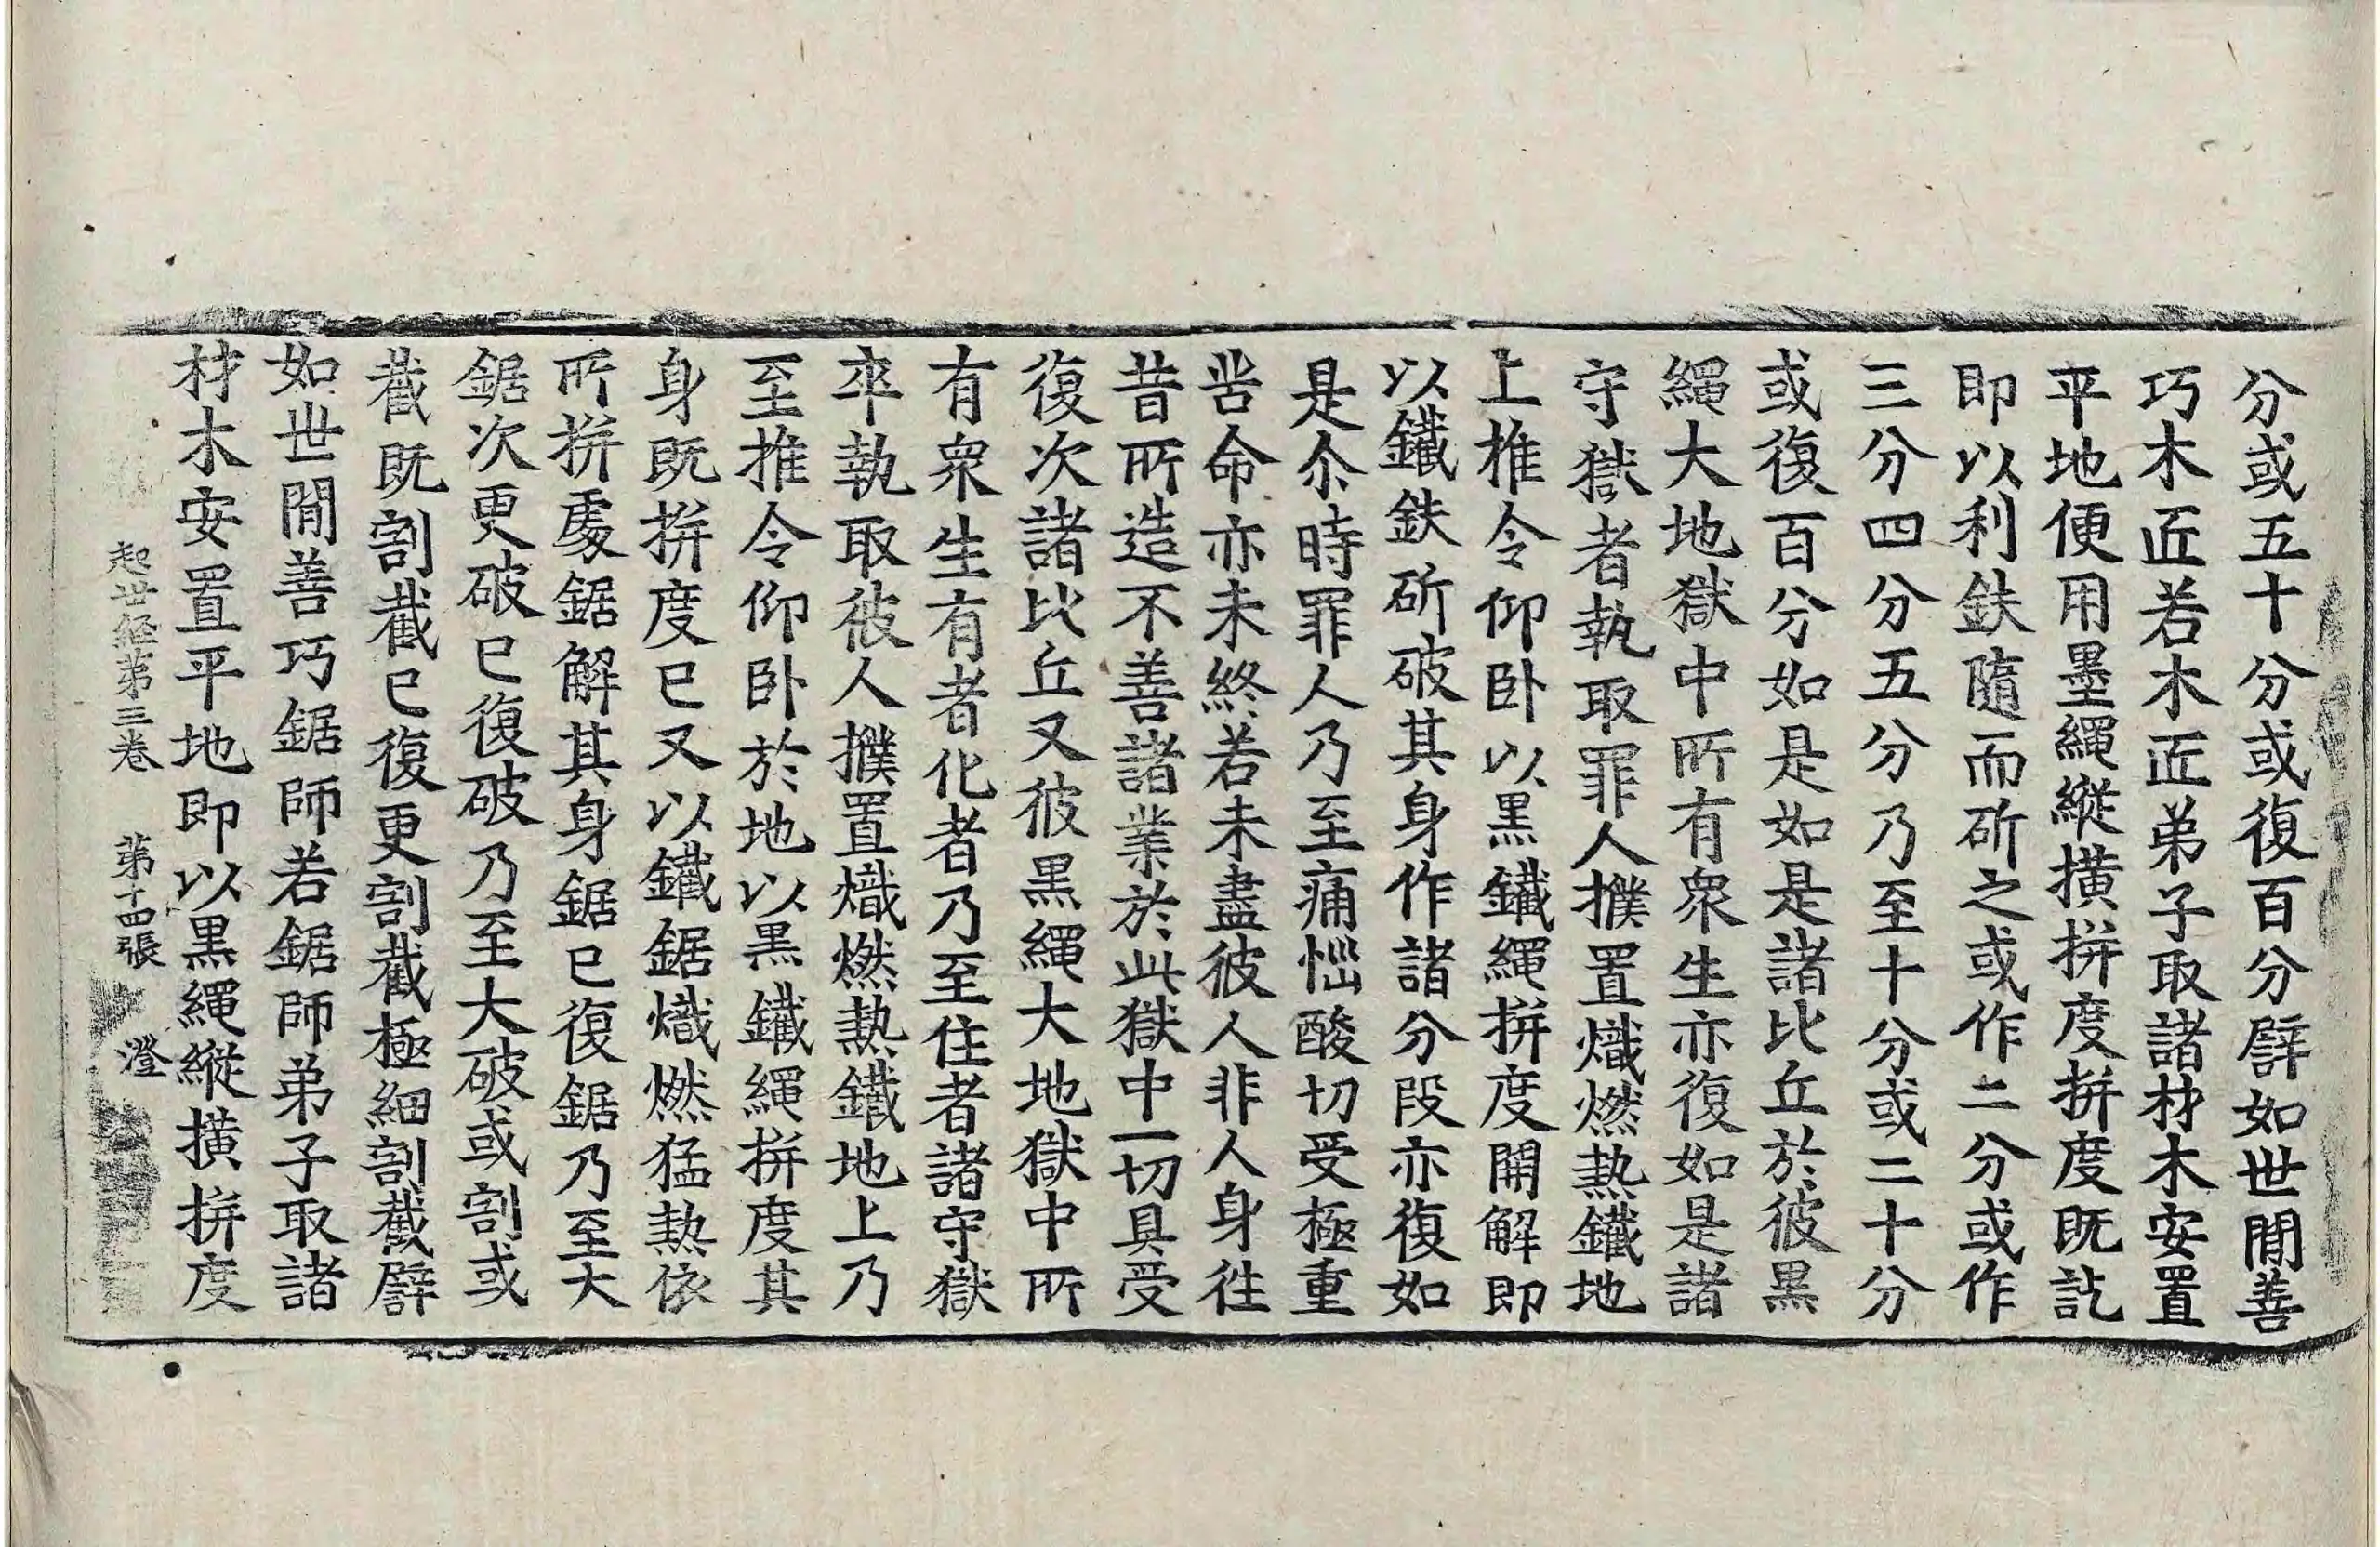 分或五十分或復百分譬如世閒善
巧木匠若木匠弟子取諸材木安置
平地便用墨繩縱橫拼度拼度既訖
即以利鈇隨而斫之或作二分或作
三分四分五分乃至十分或二十分
或復百分如是如是諸比丘於彼黑
繩大地獄中所有衆生亦復如是諸
守獄者執取罪人撲置熾燃熱鐵地
上推令仰卧以黑鐵繩拼度開解即
以鐵鈇斫破其身作諸分段亦復如
是尒時罪人乃至痛惱酸切受極重
苦命亦未終若未盡彼人非人身往
昔所造不善諸業於此獄中一切具受
復次諸比丘又彼黑繩大地獄中所
有衆生有者化者乃至住者諸守獄
卒執取彼人撲置熾燃熱鐵地上乃
至推令仰卧於地以黑鐵繩拼度其
身既拼度已又以鐵鋸熾燃猛熱依
所拼處鋸解其身鋸已復鋸乃至大
鋸次更破已復破乃至大破或割或
截既割截已復更割截極細割截譬
如世閒善巧鋸師若鋸師弟子取諸
材木安置平地即以黑繩縱橫拼度
起世經第三卷 第十四張 澄